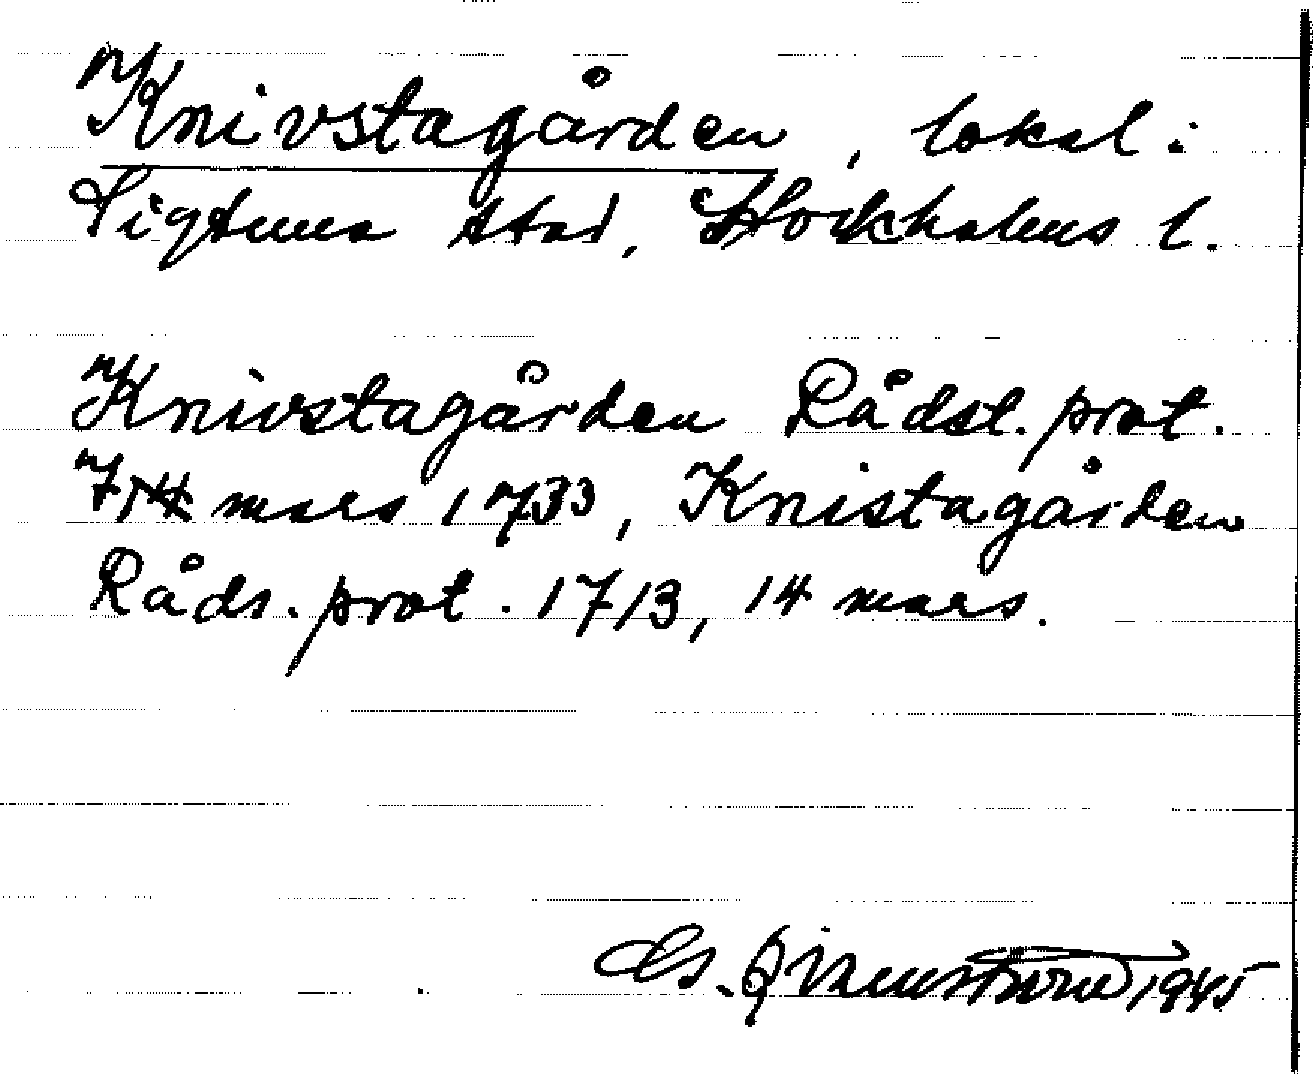 Knivstagården, lokal i
Sigtuna stad, Stockholms l.
Knivstagården Rådst. prot.
mars 1733, Knistagården
Råds. prot. 1713, 14 mars.
1945